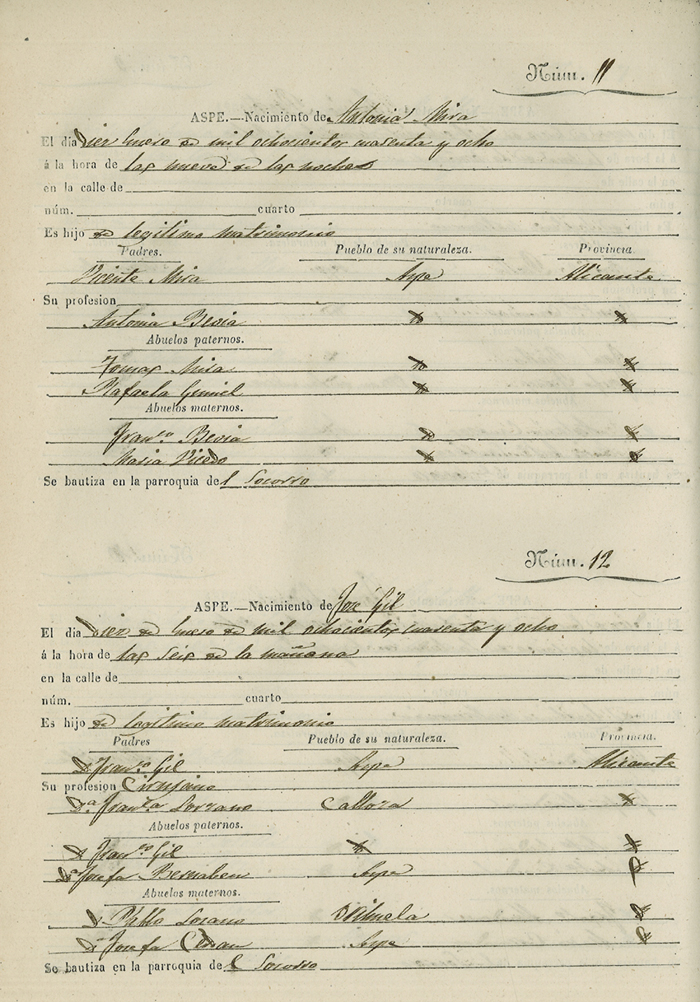 Núm. 11
ASPE.—Nacimiento de Antonia Mira
El dia diez Enero de mil ochocientos cuarenta y ocho
á la hora de las nueve de las noches
en la calle de
núm. cuarto
Es hijo de legitimo matrimonio
Padres. Pueblo de su naturaleza. Provincia.
Vicente Mira Aspe Alicante
Su profesion
Antonia Beviá
Abuelos paternos.
Tomas Mira
Rafaela
Abuelos maternos.
Franco. Beviá
Maria Vicedo
Se bautiza en la parroquia del Socorro
Núm. 12
ASPE.—Nacimiento de Jose Gil
El dia diez de Enero de mil ochocientos cuarenta y ocho
á la hora de las seis de la mañana
en la calle de
núm. cuarto
Es hijo de legitimo matrimonio
Padres Pueblo de su naturaleza. Provincia.
Dn. Franco. Gil Aspe Alicante
Su profesion Cirujano
Da. Franca. Lozano Callosa
Abuelos paternos.
Dn. Franco. Gil
Da. Josefa Bernabeu Aspe
Abuelos maternos.
Dn. Pablo Lozano
Da. Josefa Aspe
Se bautiza en la parroquia del Socorro